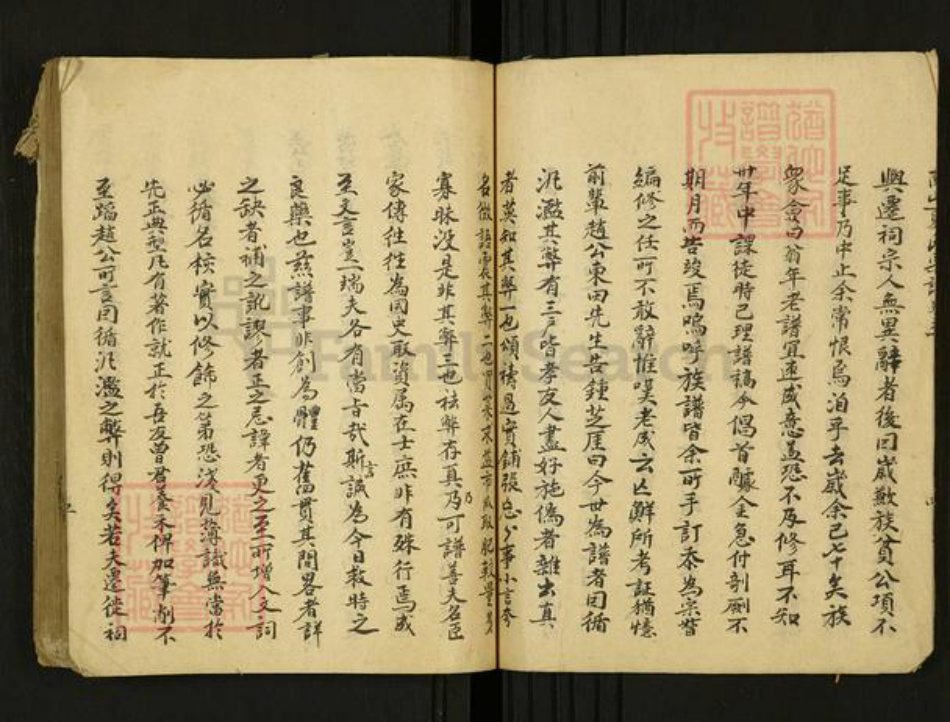 興遷祠宗人無異辭者後因歲歉族貧公項不
足事乃中止余常恨焉洎乎去歲余已七十矣族
衆會曰翁年老譜宜亟成意蓋恐不及修耳不知
廿年中課徒時已理譜稿今倡首醵金急付剞劂不
期月而告竣焉嗚呼族譜皆余一所手訂忝為宗督
編修之任而不敢辭惟嘆老成云亡鮮所考証猶憶
前輩趙公東田先生告鍾芝厓曰今世為譜者因循
汎濫其弊有三三皆孝友人盡好施偽者雜出真
者莫知其弊一也頌禱過實鋪張
事小言夸
名微語震其弊二也
寡昧沒是非其弊三也祛弊存真乃可譜善夫名臣
家傳徃徃為國史取資属在士庶非有殊行焉或
至文言豈一端夫各有當旨哉斯言誠為今日救時之
良藥也茲譜事非創為體仍舊貫其間畧者詳
之缺者補之訛謬者正之忌諱者更之至所增人文詞
必循名核實以修飾之第恐淺見薄識無當於
先正典型凡有著作就正於吾友曾君養禾俾加筆削不
至蹈趙公可言因循汎濫之弊則得矣若夫遷徙祠
FamilySearch